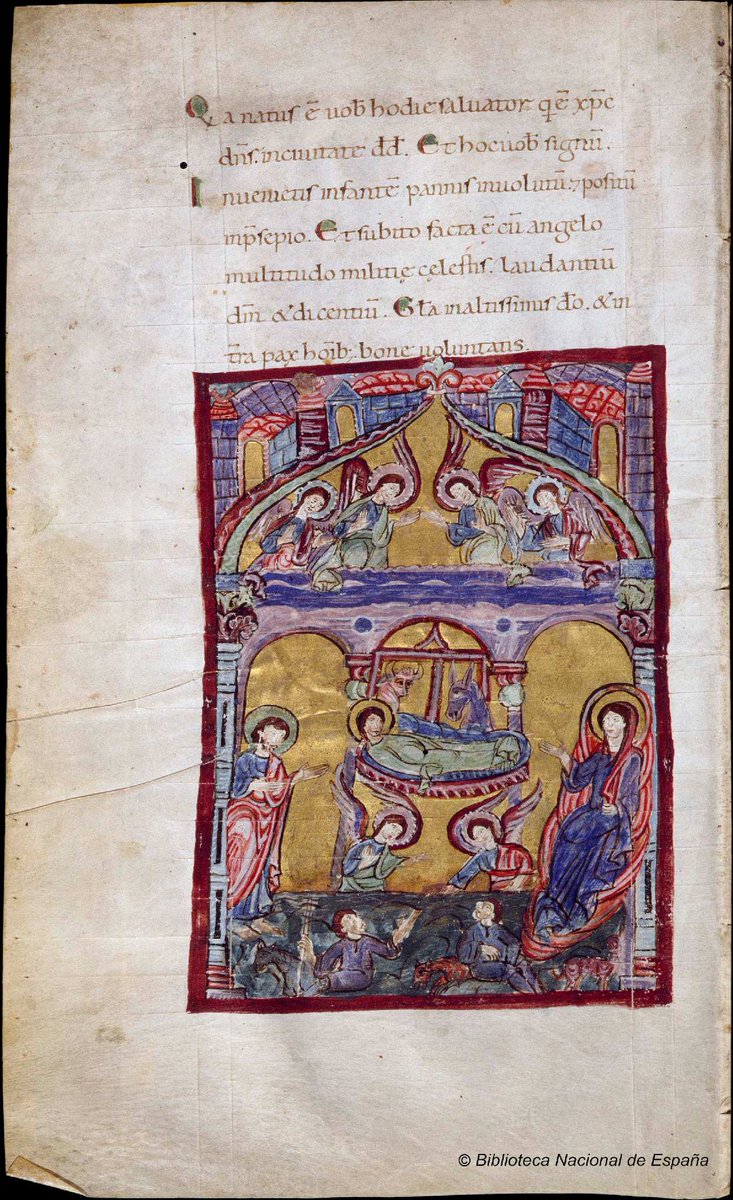 Qa natus ē uob̄ hodie saluator q̄ ē xp̄c
dn̄s. in ciuitate dd̄. Et hoc uob̄ signū.
Inuenietis infantē pannis inuolutū. ⁊ positū
in p̄sepio. Et subito facta ē cū angelo
multitudo militię cęlestis. laudantiū
dm̄ & dicentiū. Gła in altissimis dō. & in
t̄ra pax hoīb; bone uoluntatis.
© Biblioteca Nacional de España